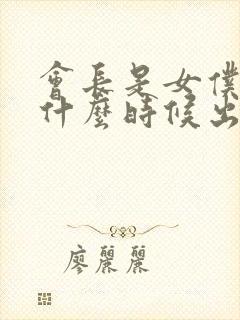 會長是女僕
什麼時候出
廖麗麗